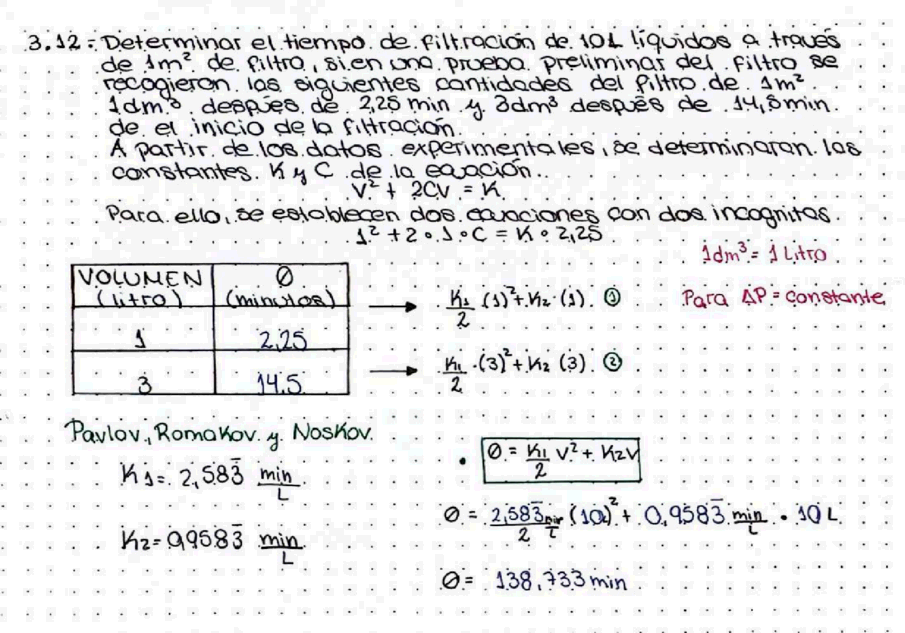 3.12: Determinar el tiempo de filtración de 10L líquidos a través
de 1m² de filtro, si en una prueba preliminar del filtro se
recogieron las siguientes cantidades del filtro de 1m²
1dm³ después de 2,25 min y 3dm³ después de 14,5min
de el inicio de la filtración.
A partir de los datos experimentales, se determinaran las
constantes K y C de la ecuación.
V² + 2CV = K
Para ello, se establecen dos ecuaciones con dos incognitas
1² + 2 • 1 • C = K • 2,25
1dm³ = 1 Litro
Para ΔP = constante
VOLUMEN (litro) Ø (minutos)
1 2,25 → K1/2 (1)² + K2 (1) ①
3 14.5 → K1/2 • (3)² + K2 (3) ②
Pavlov, Romakov y Noskov.
K1 = 2,583̄ min/L
K2 = 0,9583̄ min/L
• Ø = K1/2 V² + K2V
Ø = 2,583̄ min/L / 2 (10L)² + 0,9583̄ min/L • 10 L
Ø = 138,733 min